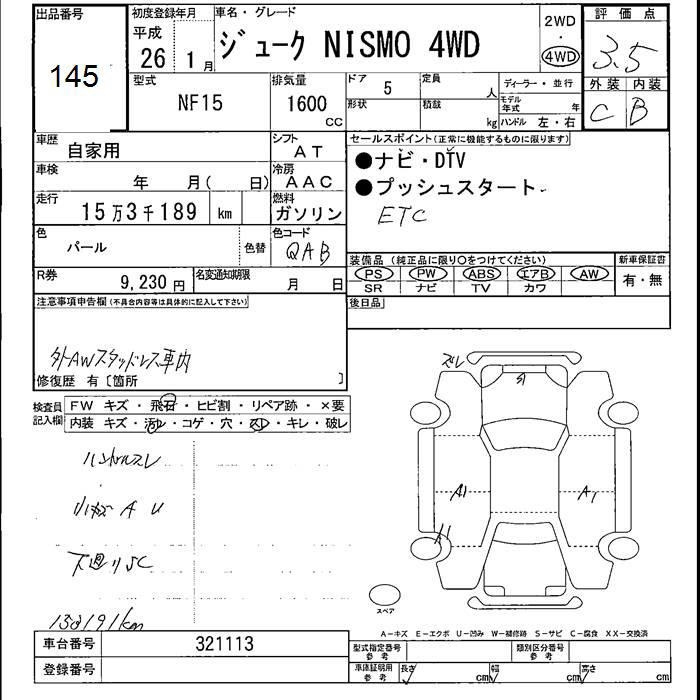 出品番号
145
初度登録年月
平成
26年 1月
車名・グレード
ジューク NISMO 4WD
2WD
・
4WD
評価点
3.5
外装 内装
C B
型式
NF15
排気量
1600
CC
ドア 5
定員 人
形状
積載 kg
ディーラー・並行
モデル年式 年
ハンドル 左・右
車歴 自家用
シフト AT
車検 年 月( 日)
冷房 AAC
走行 15万3千189 km
燃料 ガソリン
色 パール 色替
色コード QAB
R券 9,230円
名変通知期限 月 日
セールスポイント(正常に機能するものに限ります)
●ナビ・DTV
●プッシュスタート
ETC
装備品(純正品に限り○をつけてください)
PS PW ABS エアB AW
SR ナビ TV カワ
新車保証書
有・無
後日品
注意事項申告欄(不具合内容等は具体的に記入して下さい)
外AWスタッドレス車内
修復歴 有〔箇所 〕
検査員記入欄
FW キズ・飛石・ヒビ割・リペア跡・×要
内装 キズ・汚レ・コゲ・穴・スレ・キレ・破レ
ハンドルスレ
小キズ A U
下廻りSC
153191km
ズレ
A1
A1
スペア
A−キズ E−エクボ U−凹み W−補修跡 S−サビ C−腐食 XX−交換済
車台番号 321113
登録番号
型式指定番号 参考
類別区分番号 参考
車体証明用 参考
長さ cm 幅 cm 高さ cm